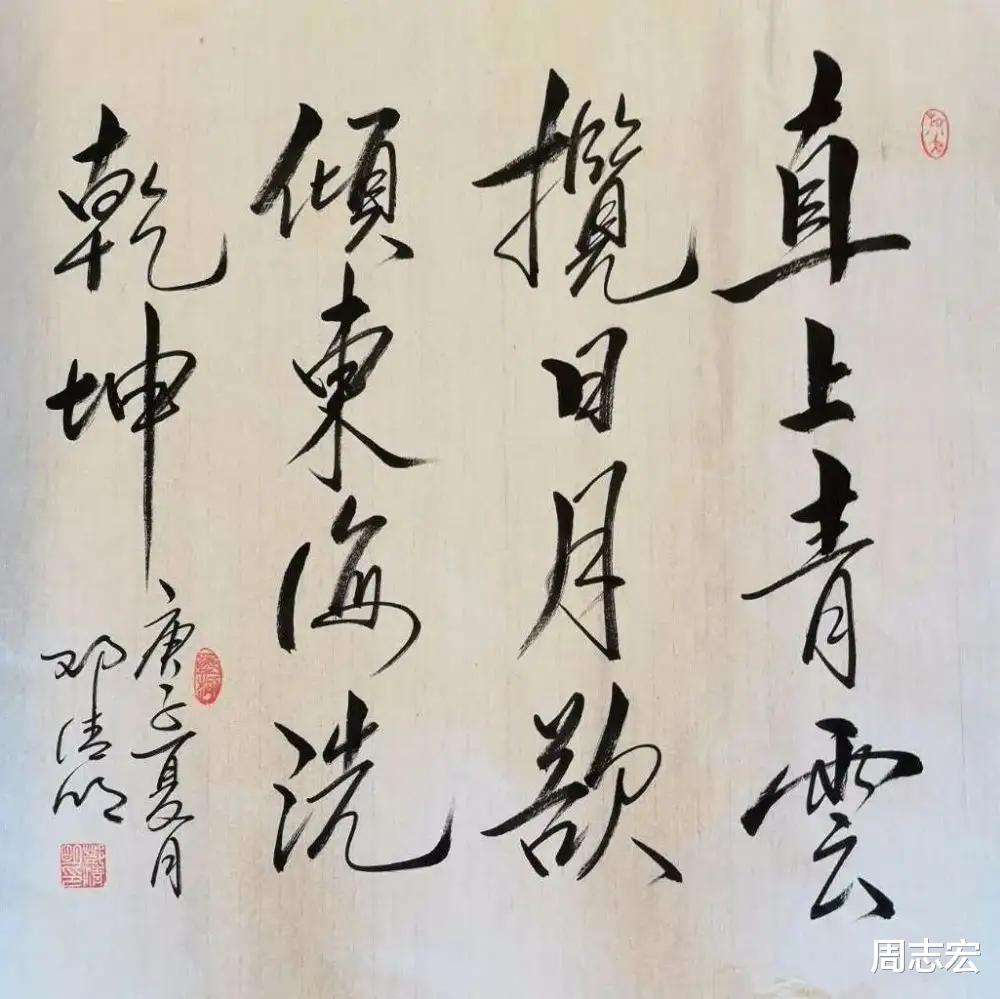 直上青雲
攬日月欲
傾東海洗
乾坤
庚子夏月
邓清明
周志宏